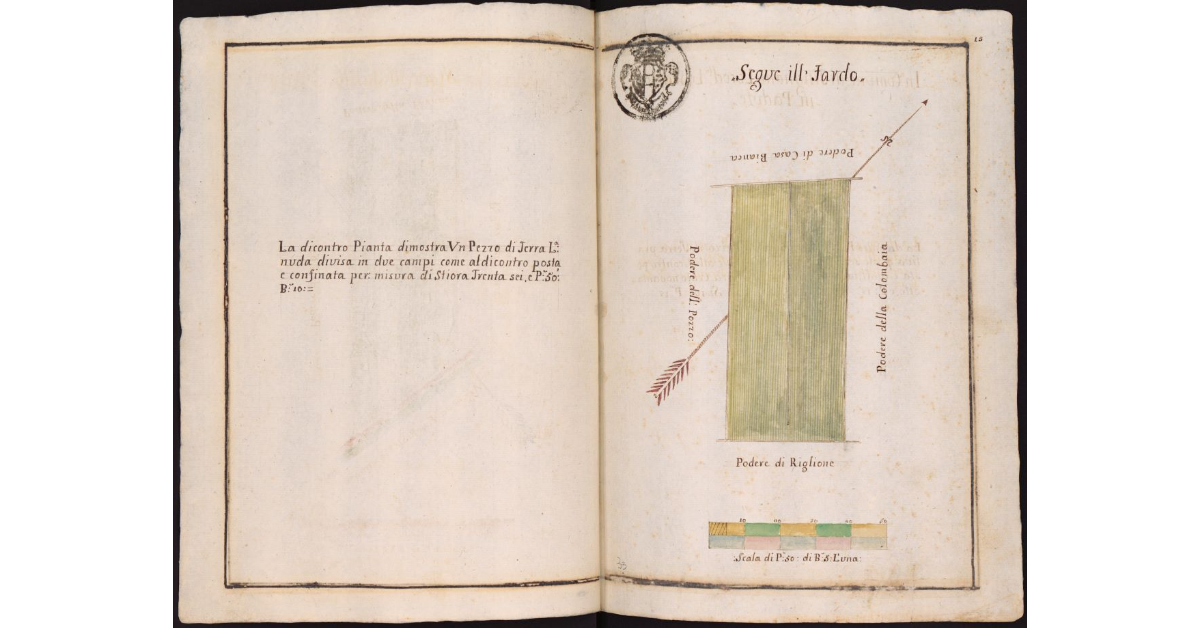 La dicontro Pianta dimostra Vn Pezzo di Terra L:ª
nuda divisa in due campi come al dicontro posta
e confinata per misura di Stiora Trenta sei, e P:ª 50:
B:ª 10: =
15
Segue ill' Tardo.
Podere di Casa Bianca
Podere dell: Pozzo:
Podere della Colombaia
Podere di Riglione
10 20 30 40 50
Scala di P:ª 50: di B:ª 5: L'una: